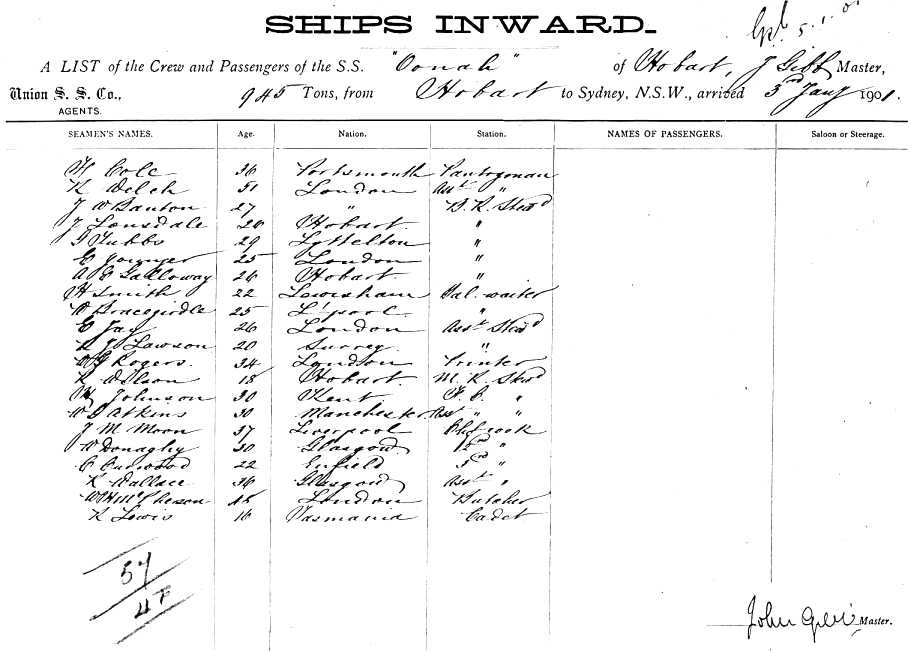 SHIPS INWARD.
5.1.01
A LIST of the Crew and Passengers of the S.S. "Oonah" of Hobart, J Gibb Master,
Union S. S. Co., AGENTS. 945 Tons, from Hobart to Sydney, N.S.W., arrived 5rd Jany 1901.
SEAMEN'S NAMES. Age. Nation. Station. NAMES OF PASSENGERS. Saloon or Steerage.
H Cole 36 Portsmouth Pantryman
K Welch 51 London Asst "
J W Banton 27 " B. R. Stewd
J Lonsdale 26 Hobart "
G Tubbs 29 Lyttelton "
E Younger 25 London "
A E Galloway 26 Hobart. "
H Smith 22 Lewisham Sal. waiter
W Bracegirdle 25 L'pool. "
E Jay 26 London Asst Stewd
Lawson 20 Surrey "
Rogers. 34 London Printer
R Wilson 18 Hobart. M. R. Stewd
Johnson 30 Kent. F. C. "
W Atkins 30 Manchester. Asst " "
J M Moon 37 Liverpool Ch Cook
W Donaghy 30 Glasgow "
C Curwood 22 Enfield 3rd "
R Wallace 36 Glasgow Asst "
London Butcher
R Lewis 16 Tasmania Cadet
57
47
John Gibb Master.